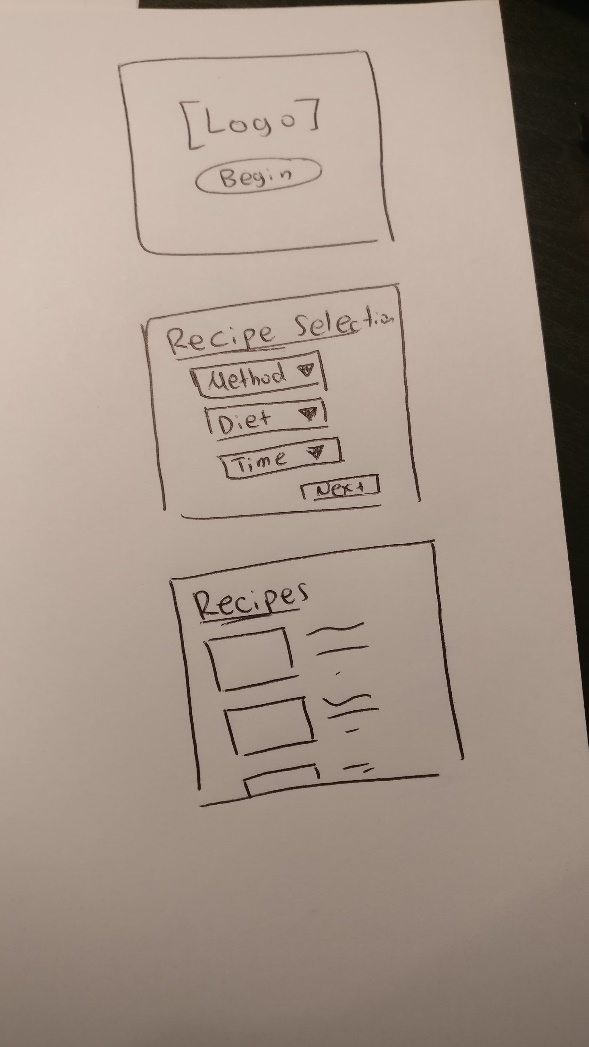 [Logo]
Begin
Recipe Selection
Method
Diet
Time
Next
Recipes